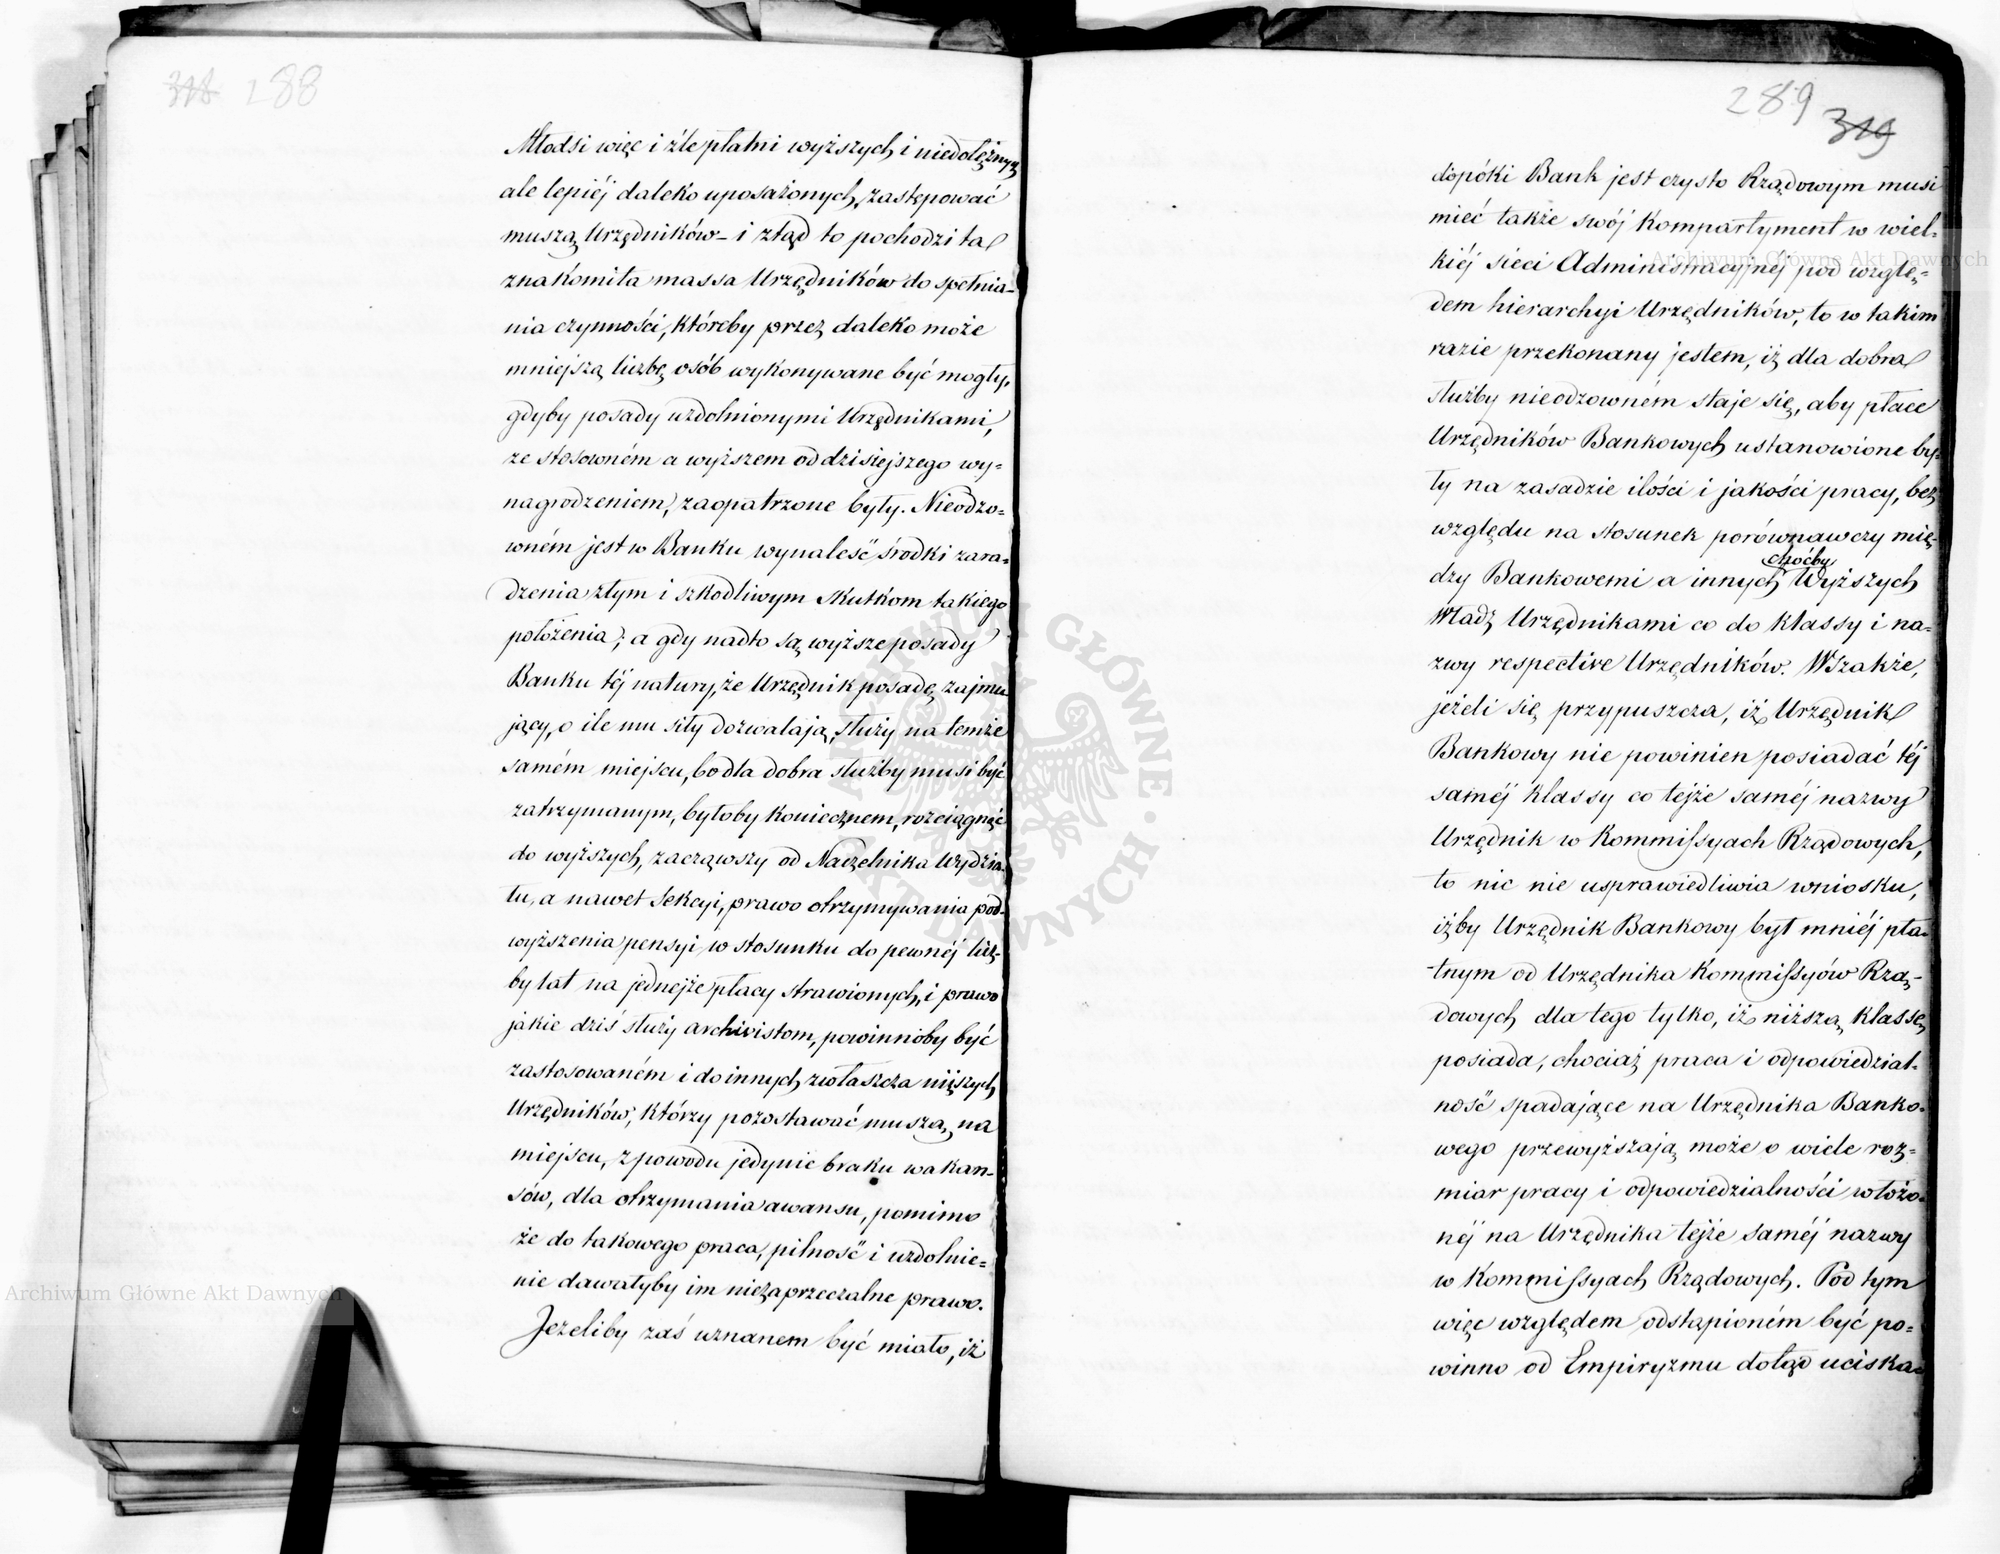 318 288
Młodsi więc i źle płatni wyższych i niedołężnych
ale lepiéj daleko uposażonych, zastępować
muszą Urzędników – i ztąd to pochodzi ta
znakomita massa Urzędników do spełnia-
nia czynności, któreby przez daleko może
mniejszą liczbę osób wykonywane być mogły,
gdyby posady uzdolnionymi Urzędnikami,
ze stosowném a wyższem od dzisiejszego wy-
nagrodzeniem, zaopatrzone były. Nieodzo-
wném jest w Banku wynaleść środki zara-
dzenia złym i szkodliwym skutkom takiego
położenia; a gdy nadto są wyższe posady
Banku téj natury, że Urzędnik posadę zajmu-
jący, o ile mu siły dozwalają, służy na temże
samém miejscu, bo dla dobra służby musi być
zatrzymanym, byłoby koniecznem, rozciągnąć
do wyższych, zacząwszy od Naczelnika Wydzia-
łu, a nawet Sekcyi, prawo otrzymywania pod-
wyższenia pensyi w stosunku do pewnéj licz-
by lat na jednejże płacy strawionych, i prawo
jakie dziś służy archivistom, powinnoby być
zastosowaném i do innych zwłaszcza niższych
Urzędników, którzy pozostawać muszą na
miejscu, z powodu jedynie braku wakan-
sów, dla otrzymania awansu, pomimo
że do takowego praca, pilność i uzdolnie-
nie dawałyby im niezaprzeczalne prawo.
Jeżeliby zaś uznanem być miało, iż
289 319
dopóki Bank jest czysto Rządowym musi
mieć także swój Kompartyment w wiel-
kiéj sieci Administracyjnéj pod wzglę-
dem hierarchyi Urzędników, to w takim
razie przekonany jestem, iż dla dobra
służby nieodzowném staje się, aby płace
Urzędników Bankowych ustanowione by-
ły na zasadzie ilości i jakości pracy, bez
względu na stosunek porównawczy mię-
choćby
dzy Bankowemi a innych Wyższych
Władz Urzędnikami co do klassy i na-
zwy respective Urzędników. Wszakże,
jeżeli się przypuszcza, iż Urzędnik
Bankowy nie powinien posiadać téj
saméj klassy co tejże saméj nazwy
Urzędnik w Kommissyach Rządowych,
to nic nie usprawiedliwia wniosku,
iżby Urzędnik Bankowy był mniéj pła-
tnym od Urzędnika Kommissyów Rzą-
dowych dla tego tylko, iż niższą klassę
posiada, chociaż praca i odpowiedzial-
ność spadające na Urzędnika Banko-
wego przewyższają może o wiele roz-
miar pracy i odpowiedzialności włożo-
néj na Urzędnika tejże saméj nazwy
w Kommissyach Rządowych. Pod tym
więc względem odstąpioném być po-
winno od Empiryzmu dotąd uciska-
Archiwum Główne Akt Dawnych
Archiwum Główne Akt Dawnych
ARCHIWUM GŁÓWNE AKT DAWNYCH